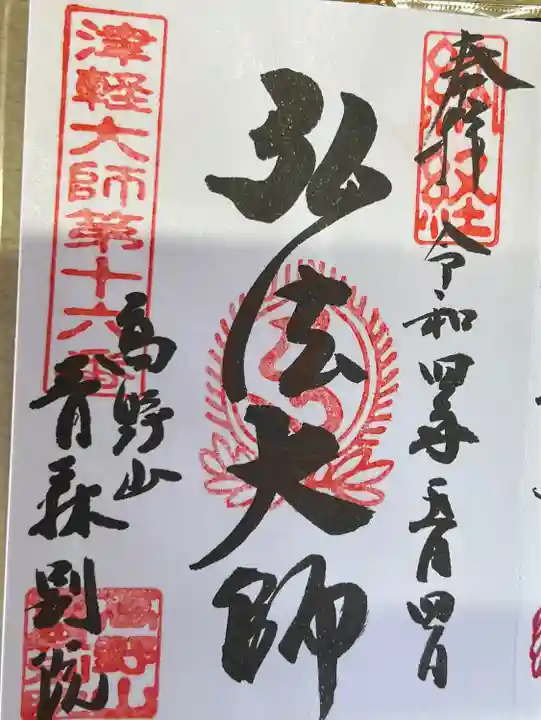 奉拝
令和四年五月四日
弘法大師
津軽大師第十六番
高野山
青森別院